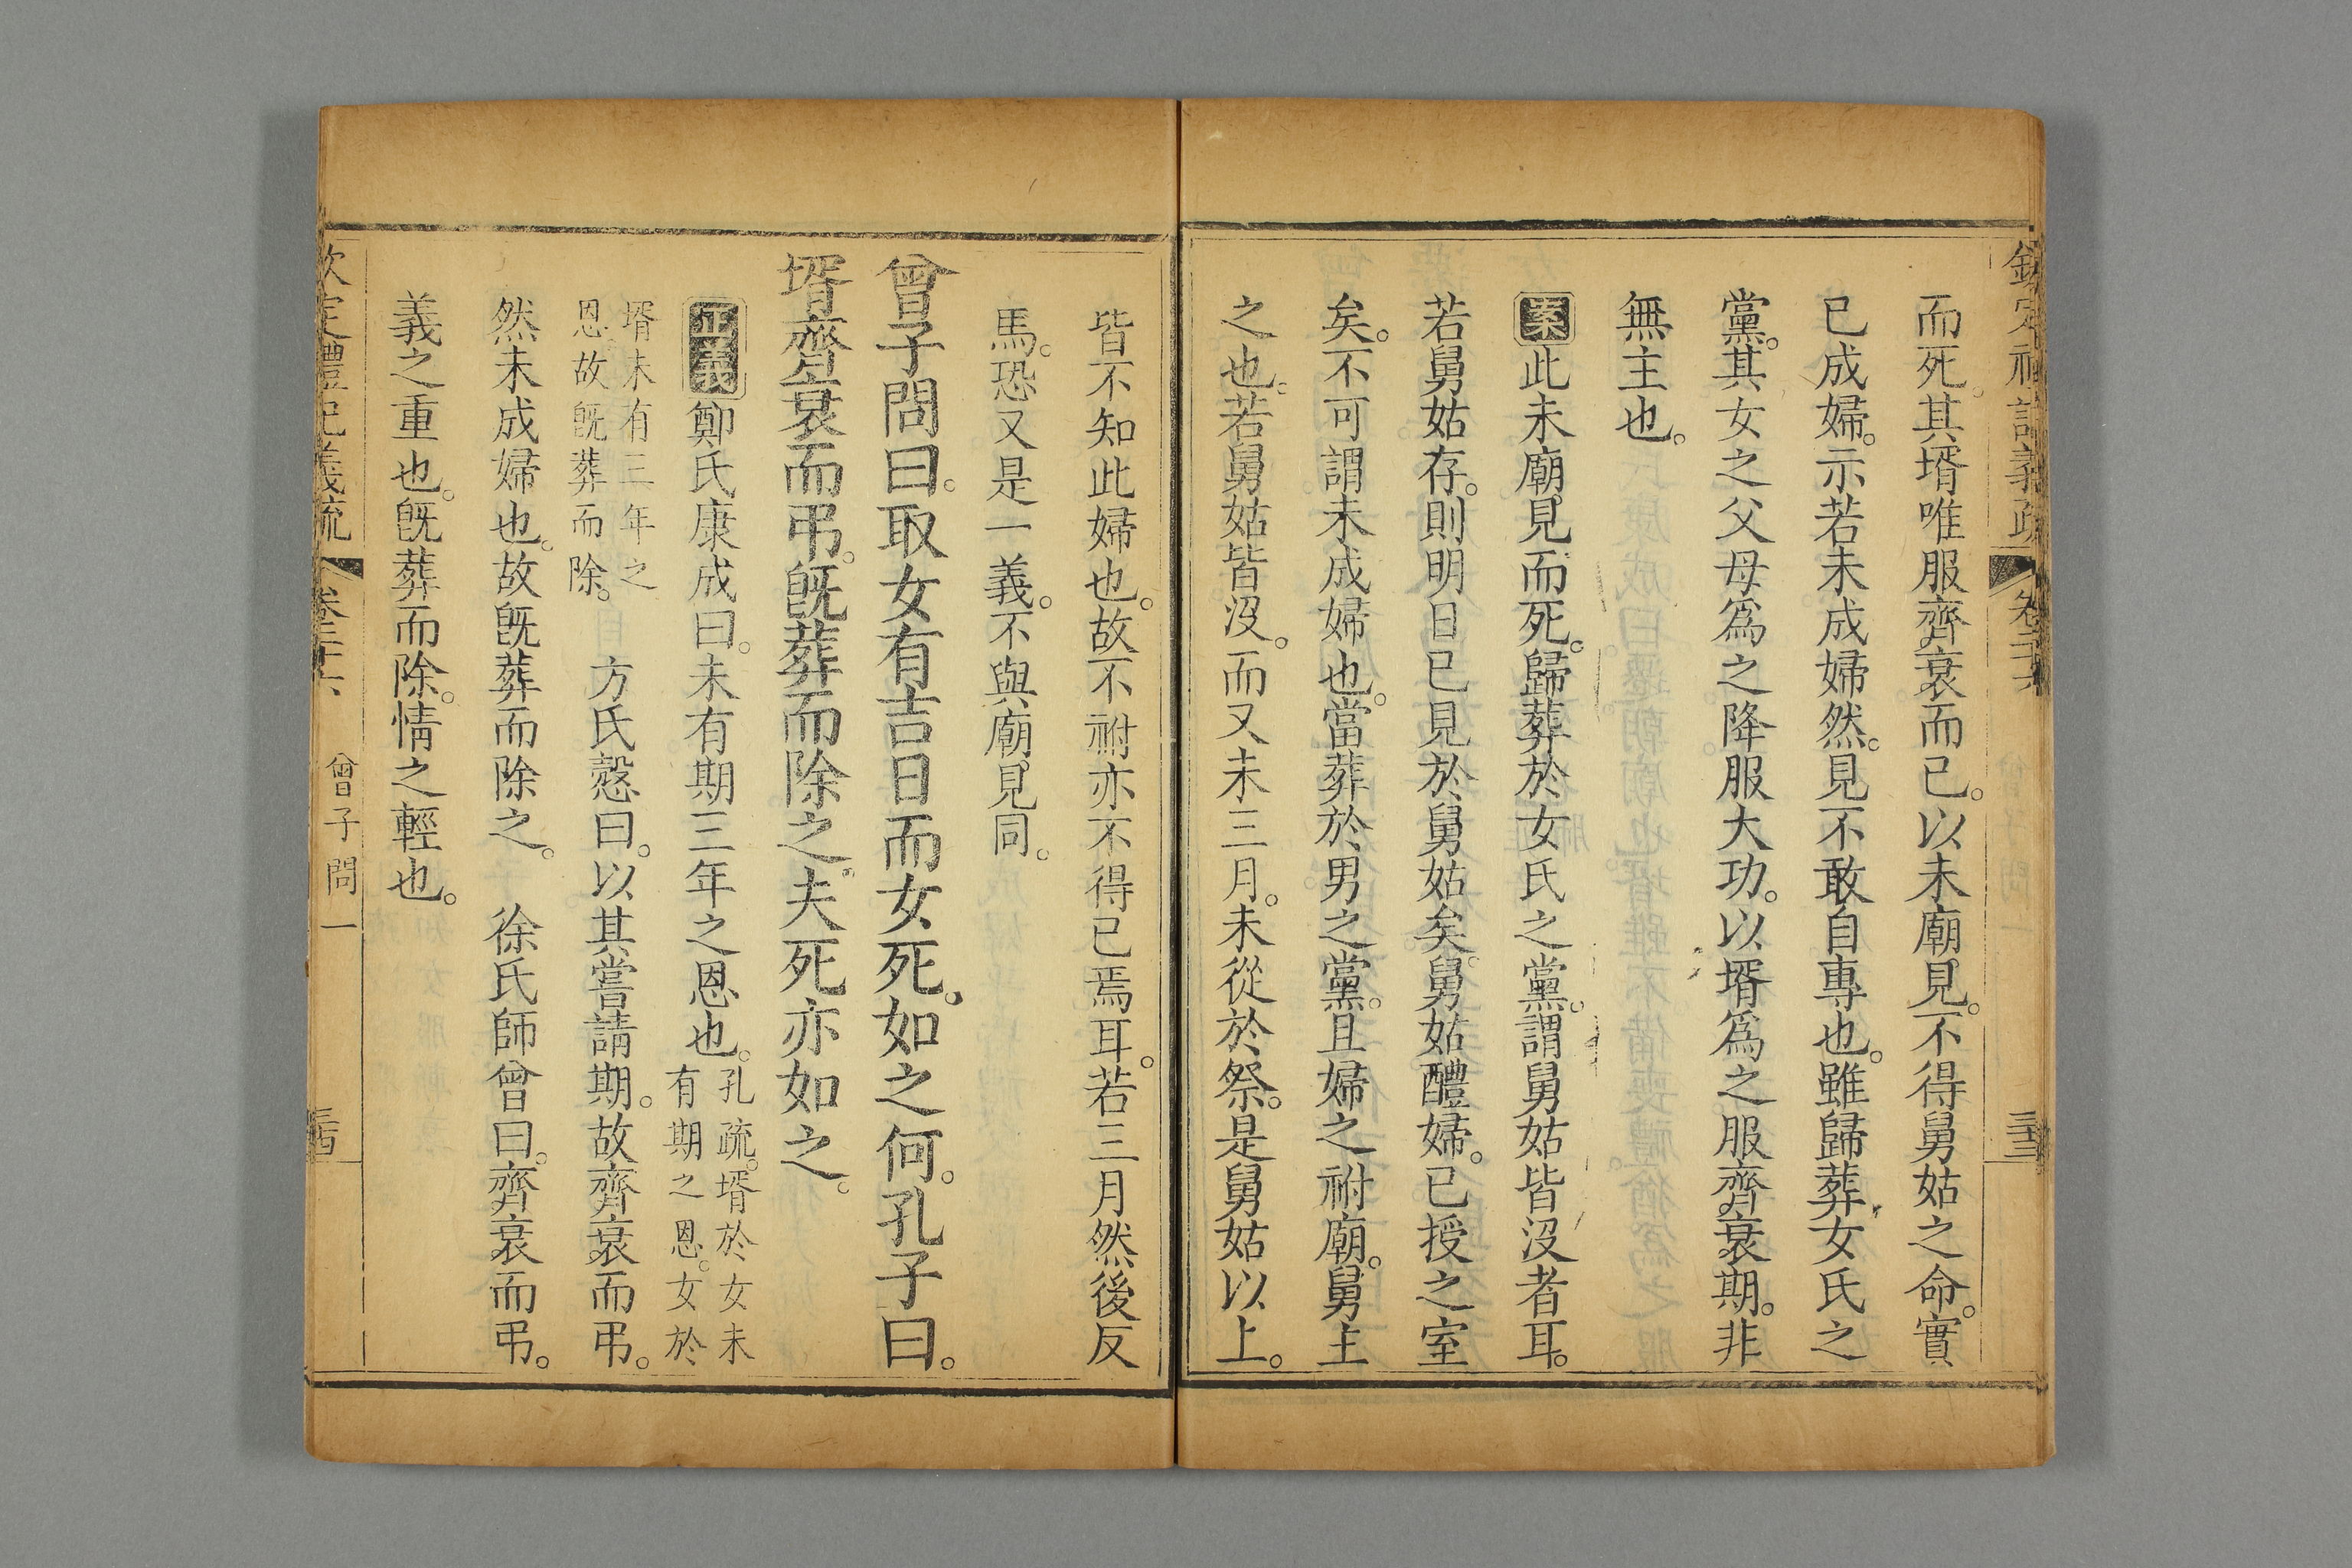 欽定禮記義疏 卷二十六 三十三
而死。其壻唯服齊衰而已。以未廟見。不得舅姑之命。實
已成婦。示若未成婦然。見不敢自專也。雖歸葬女氏之
黨。其女之父母爲之降服大功。以壻爲之服齊衰期。非
無主也。
案此未廟見而死。歸葬於女氏之黨。謂舅姑皆沒者耳。
若舅姑存。則明日已見於舅姑矣。舅姑醴婦。已授之室
矣。不可謂未成婦也。當葬於男之黨。且婦之祔廟。舅主
之也。若舅姑皆沒。而又未三月。未從於祭。是舅姑以上。
皆不知此婦也。故不祔亦不得已焉耳。若三月然後反
馬。恐又是一義。不與廟見同。
曾子問曰。取女有吉日而女死。如之何。孔子曰。
壻齊衰而弔。旣葬而除之。夫死亦如之。
正義鄭氏康成曰。未有期三年之恩也。孔疏。壻於女未
有期之恩。女於
壻未有三年之
恩。故旣葬而除。
方氏慤曰。以其嘗請期。故齊衰而弔。
然未成婦也。故旣葬而除之。 徐氏師曾曰。齊衰而弔。
義之重也。旣葬而除。情之輕也。
欽定禮記義疏 卷二十六 曾子問一 三十四